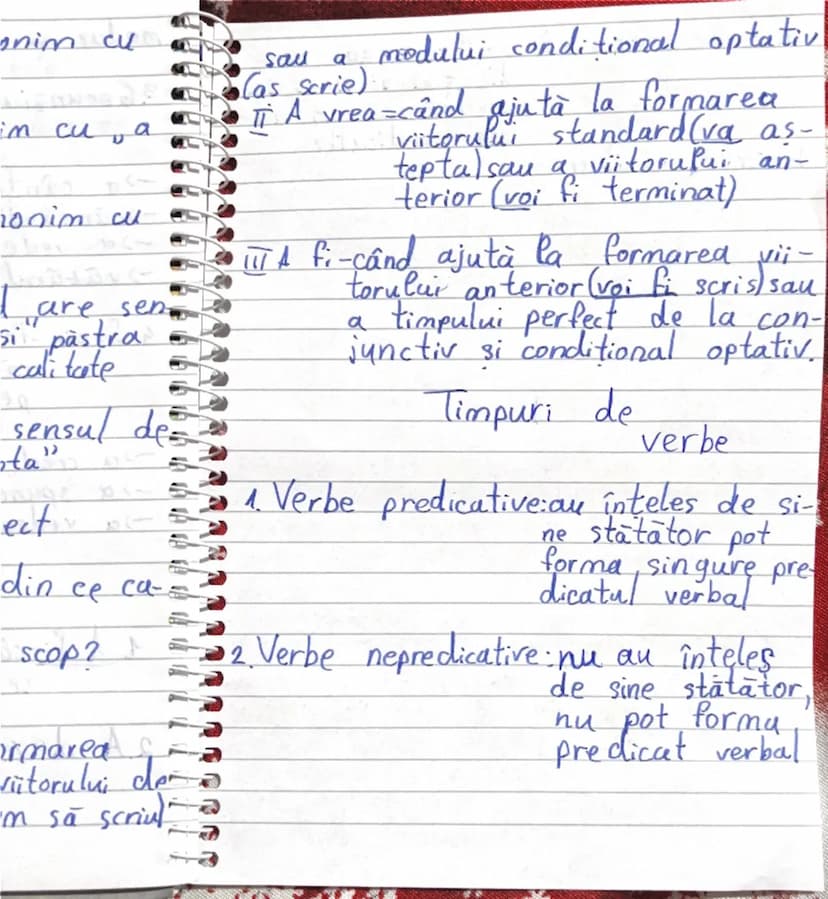 onim cu
im cu „a
nonim cu
l „are sen
si" păstra
calitate
sensul de
ta"
ect
din ce ca-
scop?
ormarea
viitorului de
m să scriu)
sau a modului condițional optativ
(as scrie)
II A vrea=când ajută la formarea
viitorului standard(va aș-
tepta) sau a viitorului an-
terior (voi fi terminat)
III A fi-când ajută la formarea vii-
torului anterior (voi fi scris) sau
a timpului perfect de la con-
junctiv și condițional optativ.
Timpuri de
verbe
1. Verbe predicative: au înțeles de si-
ne stătător pot
forma singure pre-
dicatul verbal
2. Verbe nepredicative: nu au înțeles
de sine stătător,
nu pot forma
predicat verbal